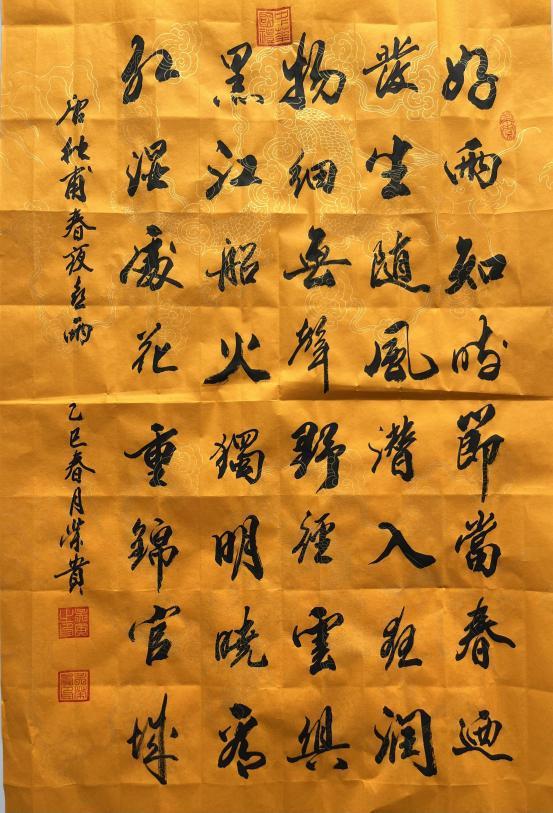 好雨知時節當春迺
發生随風潛入夜潤
物細無聲野徑雲俱
黑江船火獨明曉看
紅濕處花重錦官城
唐杜甫春夜喜雨 乙巳春月榮貴